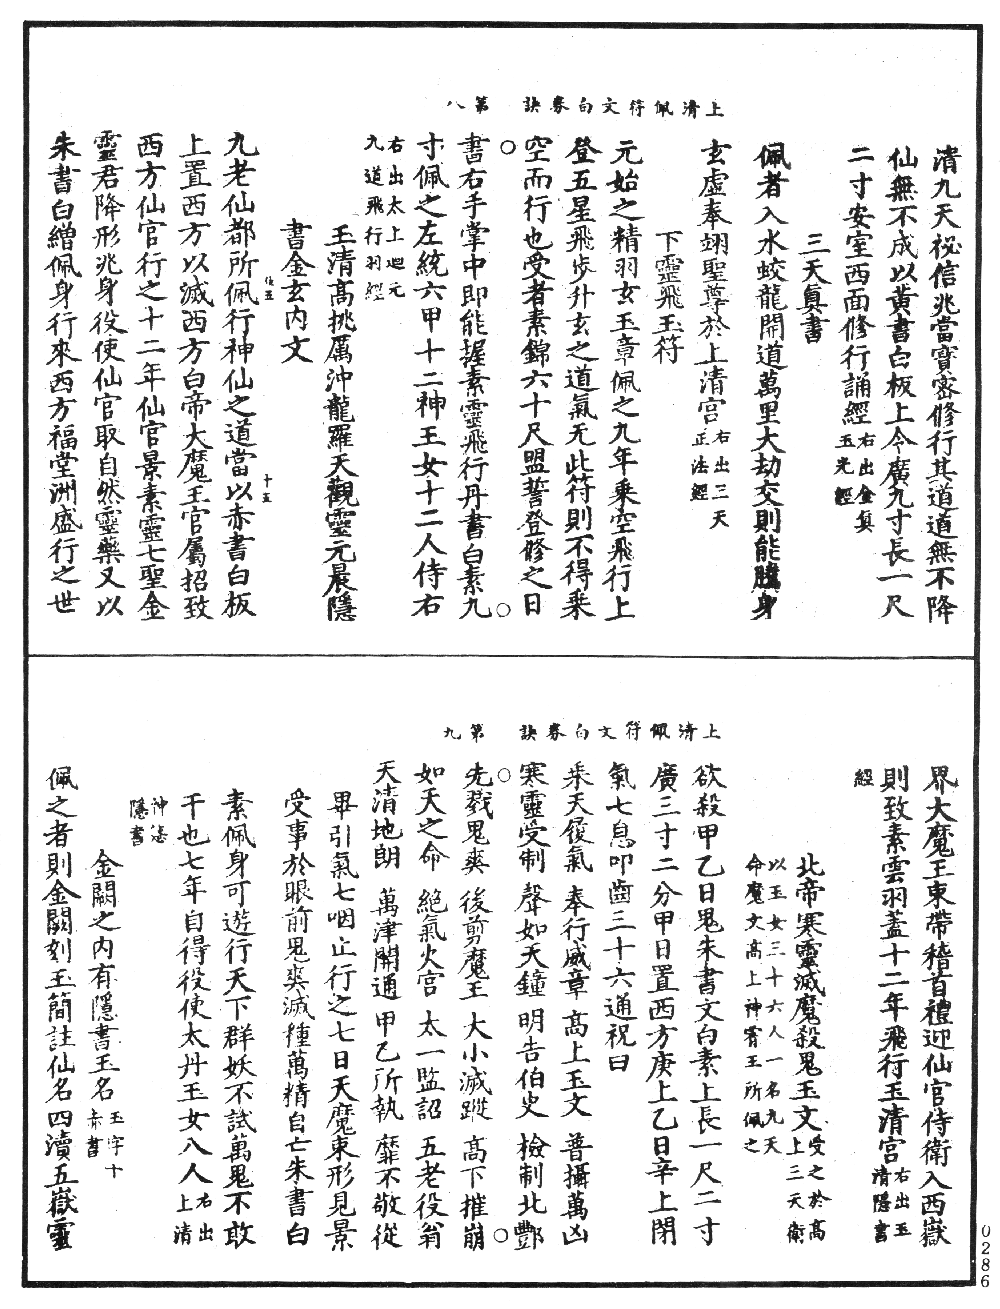 清九天祕信兆當寶密修行其道道無不降
仙無不成以黃書白板上令廣九寸長一尺
二寸安室西面修行誦經右出金真玉光經
三天真書
佩者入水蛟龍開道萬里大劫交則能騰身
玄虛奉翊聖尊於上清宮右出三天正法經
下靈飛玉符
元始之精羽玄玉章佩之九年乘空飛行上
登五星飛步升玄之道氣无此符則不得乘
空而行也受者素錦六十尺盟誓登修之日
上清佩符文白券訣 第八
書右手掌中即能握素靈飛行丹書白素九
寸佩之左統六甲十二神王女十二人侍右
右出太上迴元九道飛行羽經
玉清高挑厲沖龍羅天觀靈元晨隱
書金玄內文
九老仙都所佩行神仙之道當以赤書白板
上置西方以滅西方白帝大魔王官屬招致
西方仙官行之十二年仙官景素靈七聖金
靈君降形兆身役使仙官取自然靈藥又以
朱書白繒佩身行來西方福堂洲盛行之世
界大魔王東帶稽首禮迎仙官侍衛入西嶽
則致素雲羽蓋十二年飛行玉清宮右出玉清隱書
經
北帝寒靈滅魔殺鬼玉文受之於高上三天衛
以玉女三十六人一名九天命魔文高上神霄王所佩之
欲殺甲乙日鬼朱書文白素上長一尺二寸
廣三寸二分甲日置西方庚上乙日辛上閉
氣七息叩齒三十六通祝曰
乘天履氣 奉行威章 高上玉文 普攝萬凶
寒靈受制 聲如天鐘 明告伯史 檢制北酆
上清佩符文白券訣 第九
先戮鬼爽 後剪魔王 大小滅蹤 高下摧崩
如天之命 絕氣火宮 太一監詔 五老役翁
天清地朗 萬津開通 甲乙所執 靡不敬從
畢引氣七咽止行之七日天魔東形見景
受事於眼前鬼爽滅種萬精自亡朱書白
素佩身可遊行天下群妖不試萬鬼不敢
干也七年自得役使太丹玉女八人右出上清
神?隱書
金闕之內有隱書玉名玉字十赤書
佩之者則金闕刻玉簡註仙名四瀆五嶽靈
0286